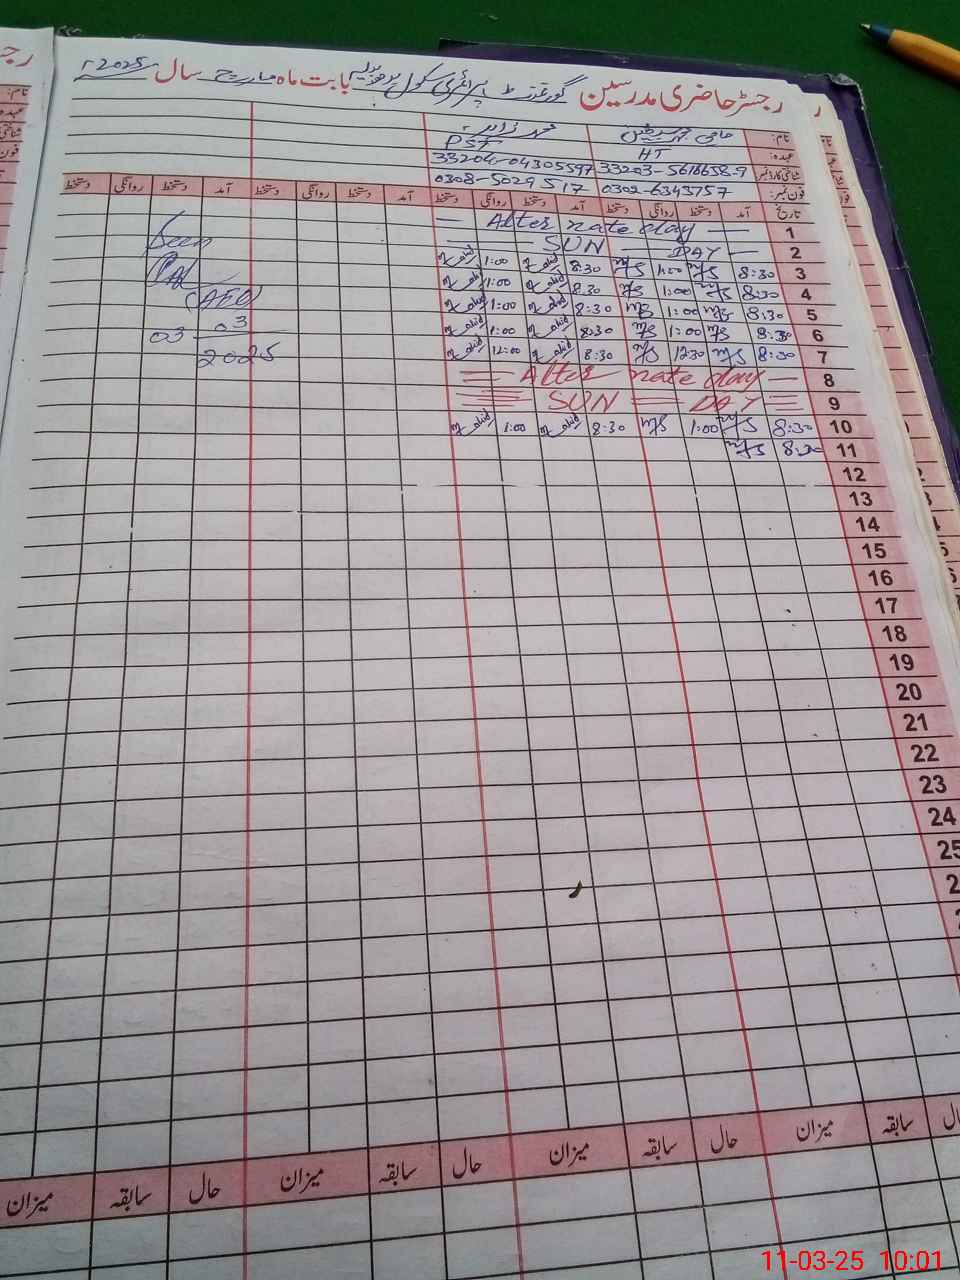 رجسٹر حاضری مدرسین گورنمنٹ پرائمری سکول بابت ماہ مارچ سال 2025ء
نام: حاجی محمد زاہد
عہدہ: HT PST
شناختی کارڈ نمبر: 33203-5618658-9 33204-0430559-7
فون نمبر: 0302-6343757 0308-5029517
تاریخ آمد دستخط روانگی دستخط آمد دستخط روانگی دستخط آمد دستخط روانگی دستخط آمد دستخط روانگی دستخط
1 — Alter nate day —
2 — SUN — DAY —
3 8:30 M/S 1:00 M/S 8:30 Zahid 1:00 Zahid
4 8:30 M/S 1:00 M/S 8:30 Zahid 1:00 Zahid
5 8:30 M/S 1:00 M/S 8:30 Zahid 1:00 Zahid
6 8:30 M/S 1:00 M/S 8:30 Zahid 1:00 Zahid
7 8:30 M/S 12:30 M/S 8:30 Zahid 12:00 Zahid
8 — Alter nate day —
9 SUN — DAY
10 8:30 M/S 1:00 M/S 8:30 Zahid 1:00 Zahid
11 8:30 M/S
Seen
(AEO)
03 03
2025
12
13
14
15
16
17
18
19
20
21
22
23
24
25
حال سابقہ میزان حال سابقہ میزان حال سابقہ میزان حال سابقہ میزان
11-03-25 10:01